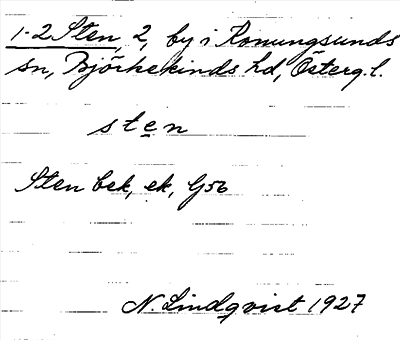 1-2 Sten, 2, by i Konungsunds
sn, Björkekinds hd, Österg.l.
sten
Sten bek, ek, G56
N. Lindqvist 1927